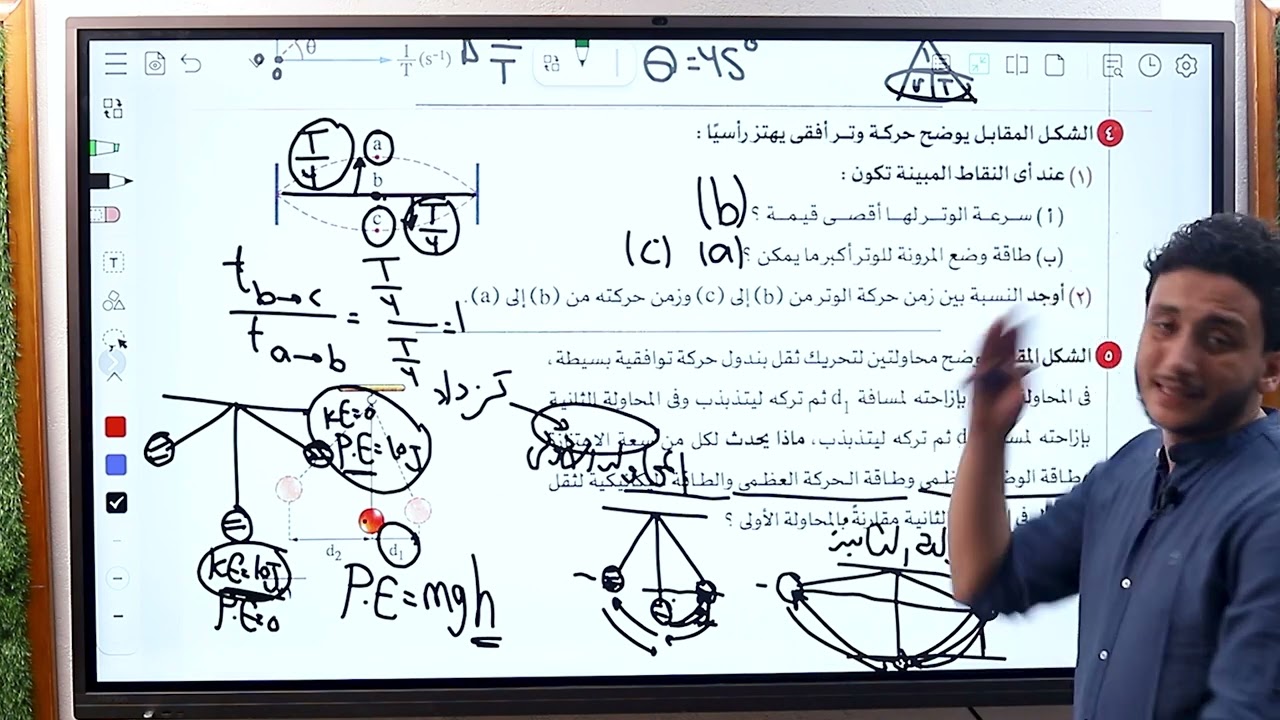 θ
1/T (s⁻¹)
Δ T/T
θ = 45°
٤ الشكل المقابل يوضح حركة وتر أفقى يهتز رأسيًا :
(١) عند أى النقاط المبينة تكون :
(أ) سرعة الوتر لها أقصى قيمة ؟ (b)
(ب) طاقة وضع المرونة للوتر أكبر ما يمكن ؟ (a) (c)
(٢) أوجد النسبة بين زمن حركة الوتر من (b) إلى (c) وزمن حركته من (b) إلى (a).
T/4
a
b
c
T/4
t b→c / t a→b = T/4 / T/4 = 1
٥ الشكل وضح محاولتين لتحريك ثقل بندول حركة توافقية بسيطة ،
فى المحاولة بإزاحته لمسافة d₁ ثم تركه ليتذبذب وفى المحاولة الثانية
بإزاحته ثم تركه ليتذبذب، ماذا يحدث لكل من سعة الاهتزازة
وطاقة الوضع وطاقة الحركة العظمى والطاقة الميكانيكية لثقل
الثانية مقارنةً بالمحاولة الأولى ؟
تزداد
KE=0
P.E=10J
d₂
d₁
KE=10J
P.E=0
P.E=mgh